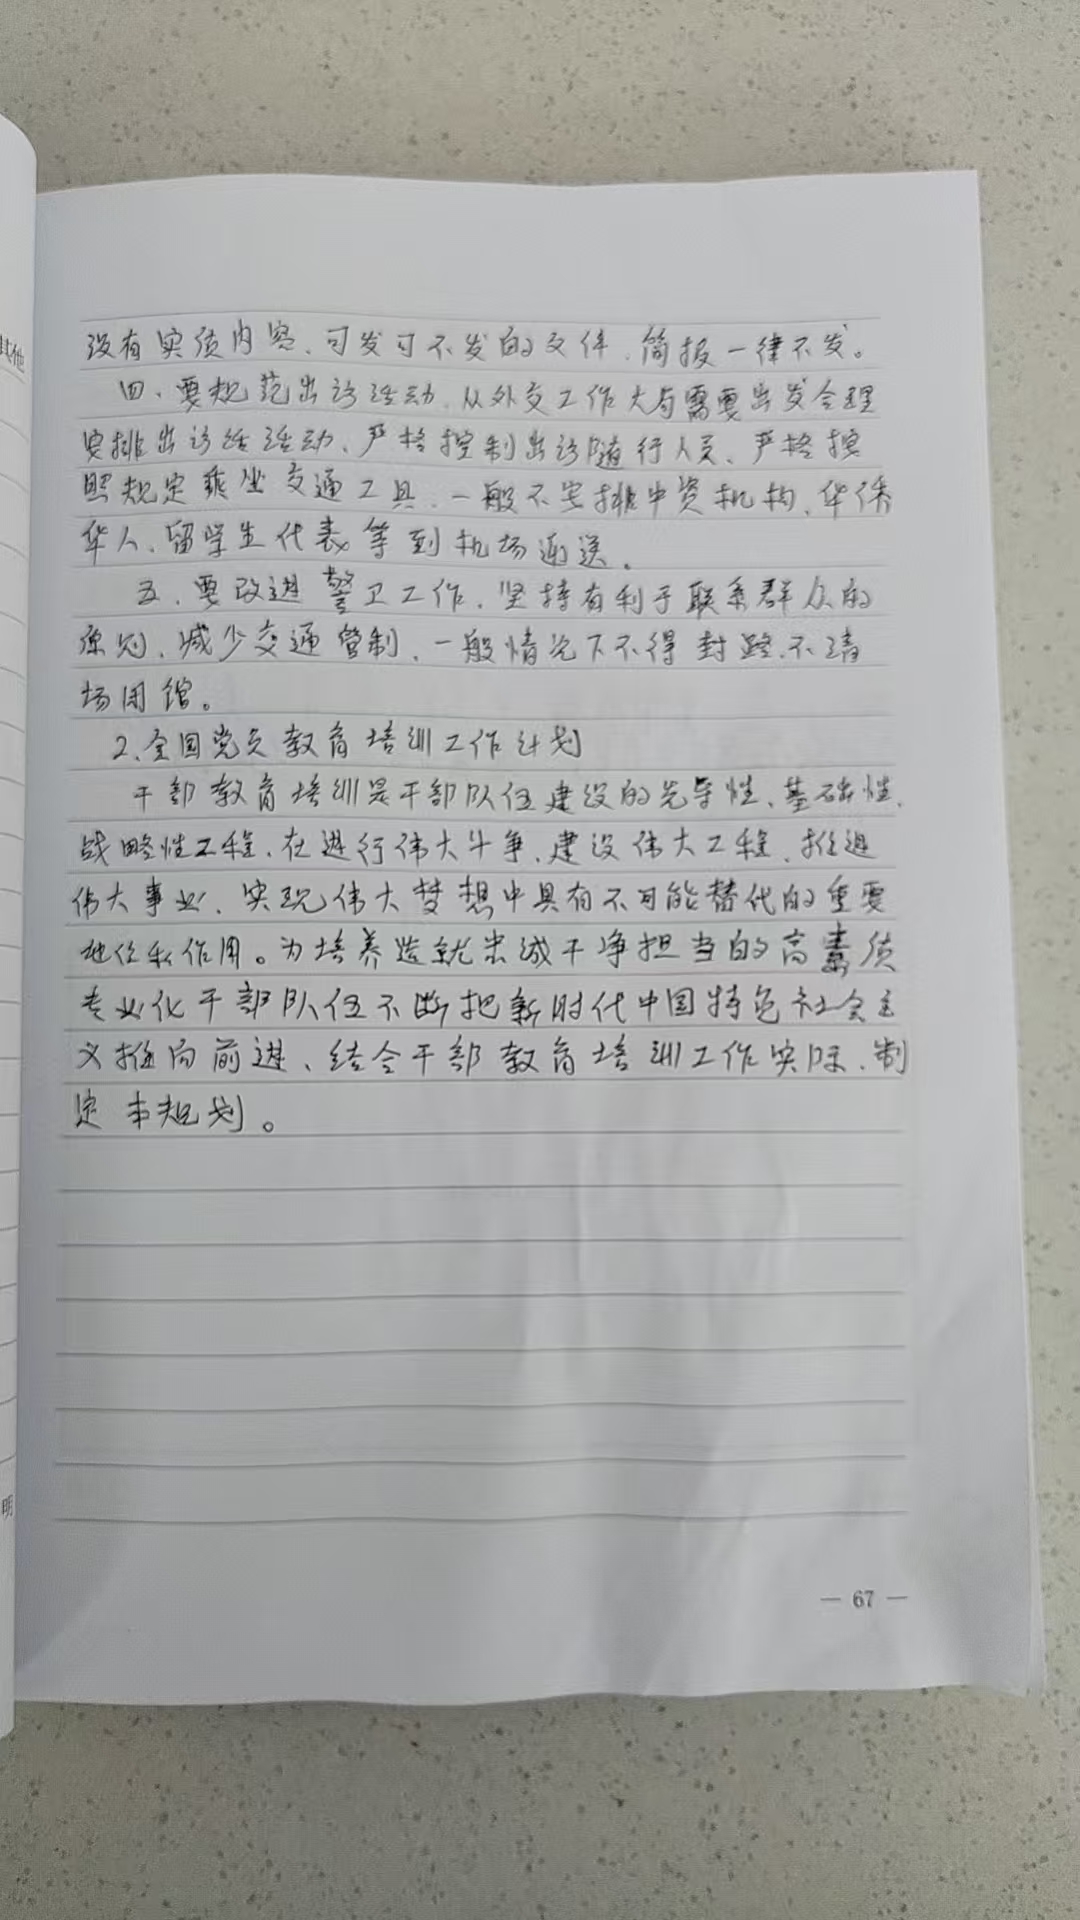 其他
没有实质内容、可发可不发的文件、简报一律不发。
四、要规范出访活动、从外交工作大局需要出发合理
安排出访活活动、严格控制出访随行人员、严格按
照规定乘坐交通工具、一般不安排中资机构、华侨
华人、留学生代表等到机场迎送。
五、要改进警卫工作、坚持有利于联系群众的
原则、减少交通管制、一般情况下不得封路、不清
场闭馆。
2、全国党员教育培训工作计划
干部教育培训是干部队伍建设的先导性、基础性、
战略性工程、在进行伟大斗争、建设伟大工程、推进
伟大事业、实现伟大梦想中具有不可能替代的重要
地位和作用。为培养造就忠诚干净担当的高素质
专业化干部队伍不断把新时代中国特色社会主
义推向前进、结合干部教育培训工作实际、制
定本规划。
明
— 67 —